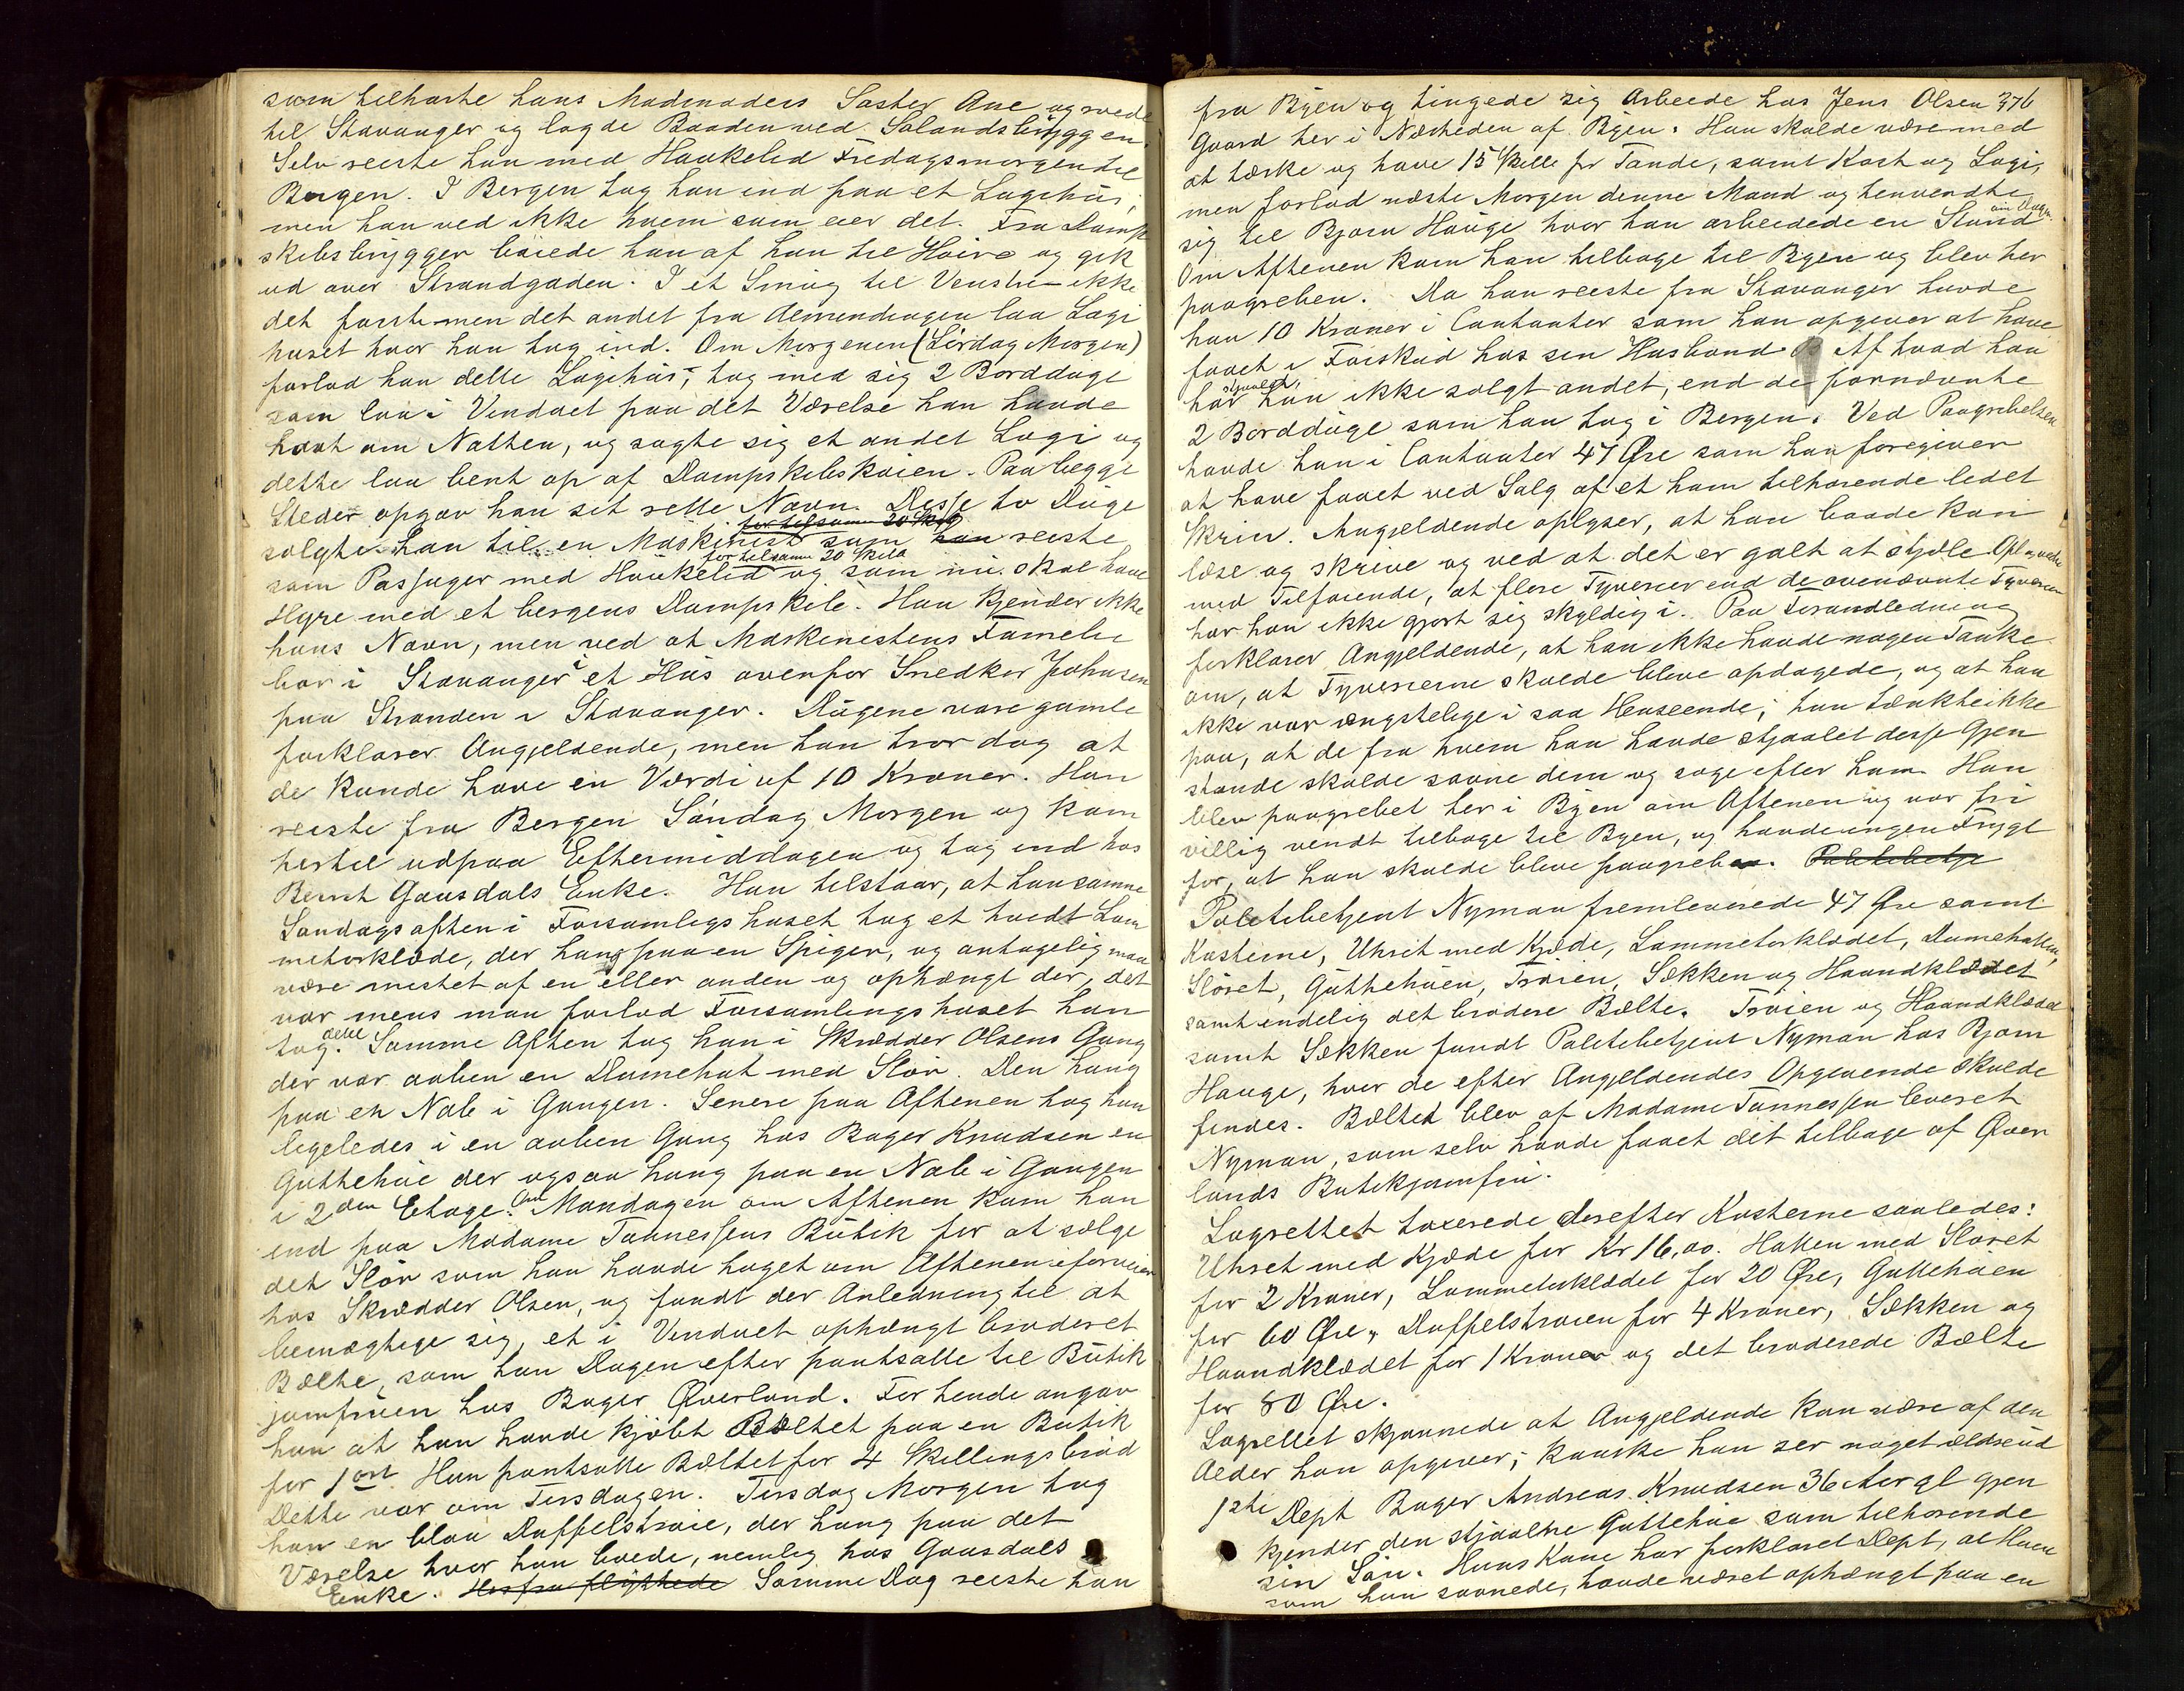 som tilhørte hans Madmoders Søster Ane og roede
til Stavanger og lagde Baaden ved Sølandsbryggen.
Selv reiste han med Haukelid Fredagsmorgen til
Bergen. I Bergen tog han ind paa et Logihus,
men han ved ikke hvem som eier det. Fra Damp
skibsbryggen bøiede han af han til Høire og gik
ud over Strandgaden. I et Smug til Venstre ikke
det første men det andet fra Almendingen laa Logi
huset hvor han tog ind. Om Morgenen (Lørdag Morgen)
forlod han dette Logihus, tog med sig 2 Bordduge
som laa i Vinduet paa det Værelse han havde
havt om Natten, og søgte sig et andet Logi og
dette laa bent op af Dampskibskaien. Paa begge
Steder opgav han sit rette Navn. Disse to Duge
for tilsamm 20 Skill
solgte han til en Maskinist som han reiste
for tilsamm 20 Skill
som Passager med Haukelid og som nu skal have
Hyre med et bergens Dampskib. Han kjender ikke
hans Navn, men ved at Maskinistens Familie
bor i Stavanger i et Hus ovenfor Snedker Johnsen
paa Stranden i Stavanger. Dugene vare gamle
forklarer Angjeldende, men han tror dog at
de kunde have en Værdi af 10 Kroner. Han
reiste fra Bergen Søndag Morgen og kom
hertil udpaa Eftermiddagen og tog ind hos
Bernt Gausdals Enke. Han tilstaar, at han samme
Søndagsaften i Forsamligshuset tog et hvidt Lom
metørklæde, der hang paa en Spiger, og antagelig maa
være mistet af en eller anden og ophængt der, det
var mens man forlod Forsamlingshuset han
tog dette. Samme Aften tog han i Skrædder Olsens Gang
der var aaben en Damehat med Slør. Den hang
paa en Nale i Gangen. Senere paa Aftenen tog han
ligeledes i en aaben Gang hos Bager Knudsen en
Guttehue der ogsaa hang paa en Nale i Gangen
i 2den Etage. Om Mandagen om Aftenen kom han
ind paa Madame Tønnessens Butik for at sælge
det Slør som han havde taget om Aftenen iforveien
hos Skrædder Olsen, og fandt der Anledning til at
bemægtige sig, et i Vinduet ophængt broderet
Bælte, som han Dagen efter pantsatte til Butik
jomfruen hos Bager Øverland. For hende angav
han at han havde kjøbt Bæltet paa en Butik
for 1 ort Han pantsatte Bæltet for 4 Skillingsbrød
Dette var om Tirsdagen. Tirsdag Morgen tog
han en blaa Duffelstrøie, der hang paa det
Værelse hvor han boede, nemlig hos Gausdals
Enke. Herfra flyttede Samme Dag reiste han
fra Byen og tingede sig Arbeide hos Jens Olsen 376
Gaard her i Nærheden af Byen. Han skulde være med
at tærske og have 15 Skill pr Tønde, samt Kost og Logi,
men forlod næste Morgen denne Mand og henvendte
sig til Bjørn Hauge hvor han arbeidede en Stund om Dagen.
Om Aftenen kom han tilbage til Byen og blev her
paagreben. Da han reiste fra Stavanger havde
han 10 Kroner i Contanter som han opgiver at have
faaet i Forskud hos sin Husbond. Af hvad han
har stjaalet, han ikke solgt andet, end de fornævnte
2 Borddúge som han tog i Bergen. Ved Paagribelsen
havde han i Contanter 47 Øre som han foregiver
at have faaet ved Salg af et ham tilhørende lidet
Skrin. Angjeldende oplyser, at han baade kan
læse og skrive og ved at det er galt at stjæle. Opl. vedr.
med Tilføiende, at flere Tyverier end de ovennævnte Tyverier
har han ikke gjort sig skyldig i. Paa Foranledning
forklarer Angjeldende, at han ikke havde nogen Tanke
om, at Tyverierne skulde blive opdagede, og at han
ikke var ængstelige i saa Henseende; han tænkte ikke
paa, at de fra hvem han havde stjaalet disse Gjen
stande skulde savne dem og søge efter ham. Han
blev paagrebet her i Byen om Aftenen og var fri
villig vendt tilbage til Byen, og havde ingen Frygt
for, at han skulde blive paagreben. Politibetje
Politibetjent Nyman fremleverede 47 Øre samt
Kosterne, Uhret med Kjæde, Lommetørklædet, Damehatten,
Sløret, Guttehuen, Trøien, Sækken og Haandklædet
samt endelig det brodere Bælte. Trøien og Haandklædet
samt Sækken fandt Politibetjent Nyman hos Bjørn
Hauge, hvor de efter Angjeldendes Opgivende skulde
findes. Bæltet blev af Madame Tønnessen leveret
Nyman, som selv havde faaet dit tilbage af Øver
lands Butikjomfru.
Lagrettet taxerede derefter Kosterne saaledes:
Uhret med Kjæde for Kr 16,00. Hatten med Sløret
for 2 Kroner, Lommetørklædet for 20 Øre, Guttehuen
for 60 Øre, Duffelstrøien for 4 Kroner, Sækken og
Haandklædet for 1 Krone og det broderede Bælte
for 80 Øre.
Lagrettet skjønnede at Angjeldende kan være af den
Alder han opgiver; kanske han ser noget ældre ud
1ste Dept Bager Andreas Knudsen 36 Aar gl gjen
kjender den stjaalne Guttehue som tilhørende
sin Søn. Hans Kone har forklaret Dept, at Huen
som hun savnede, havde været ophængt paa en